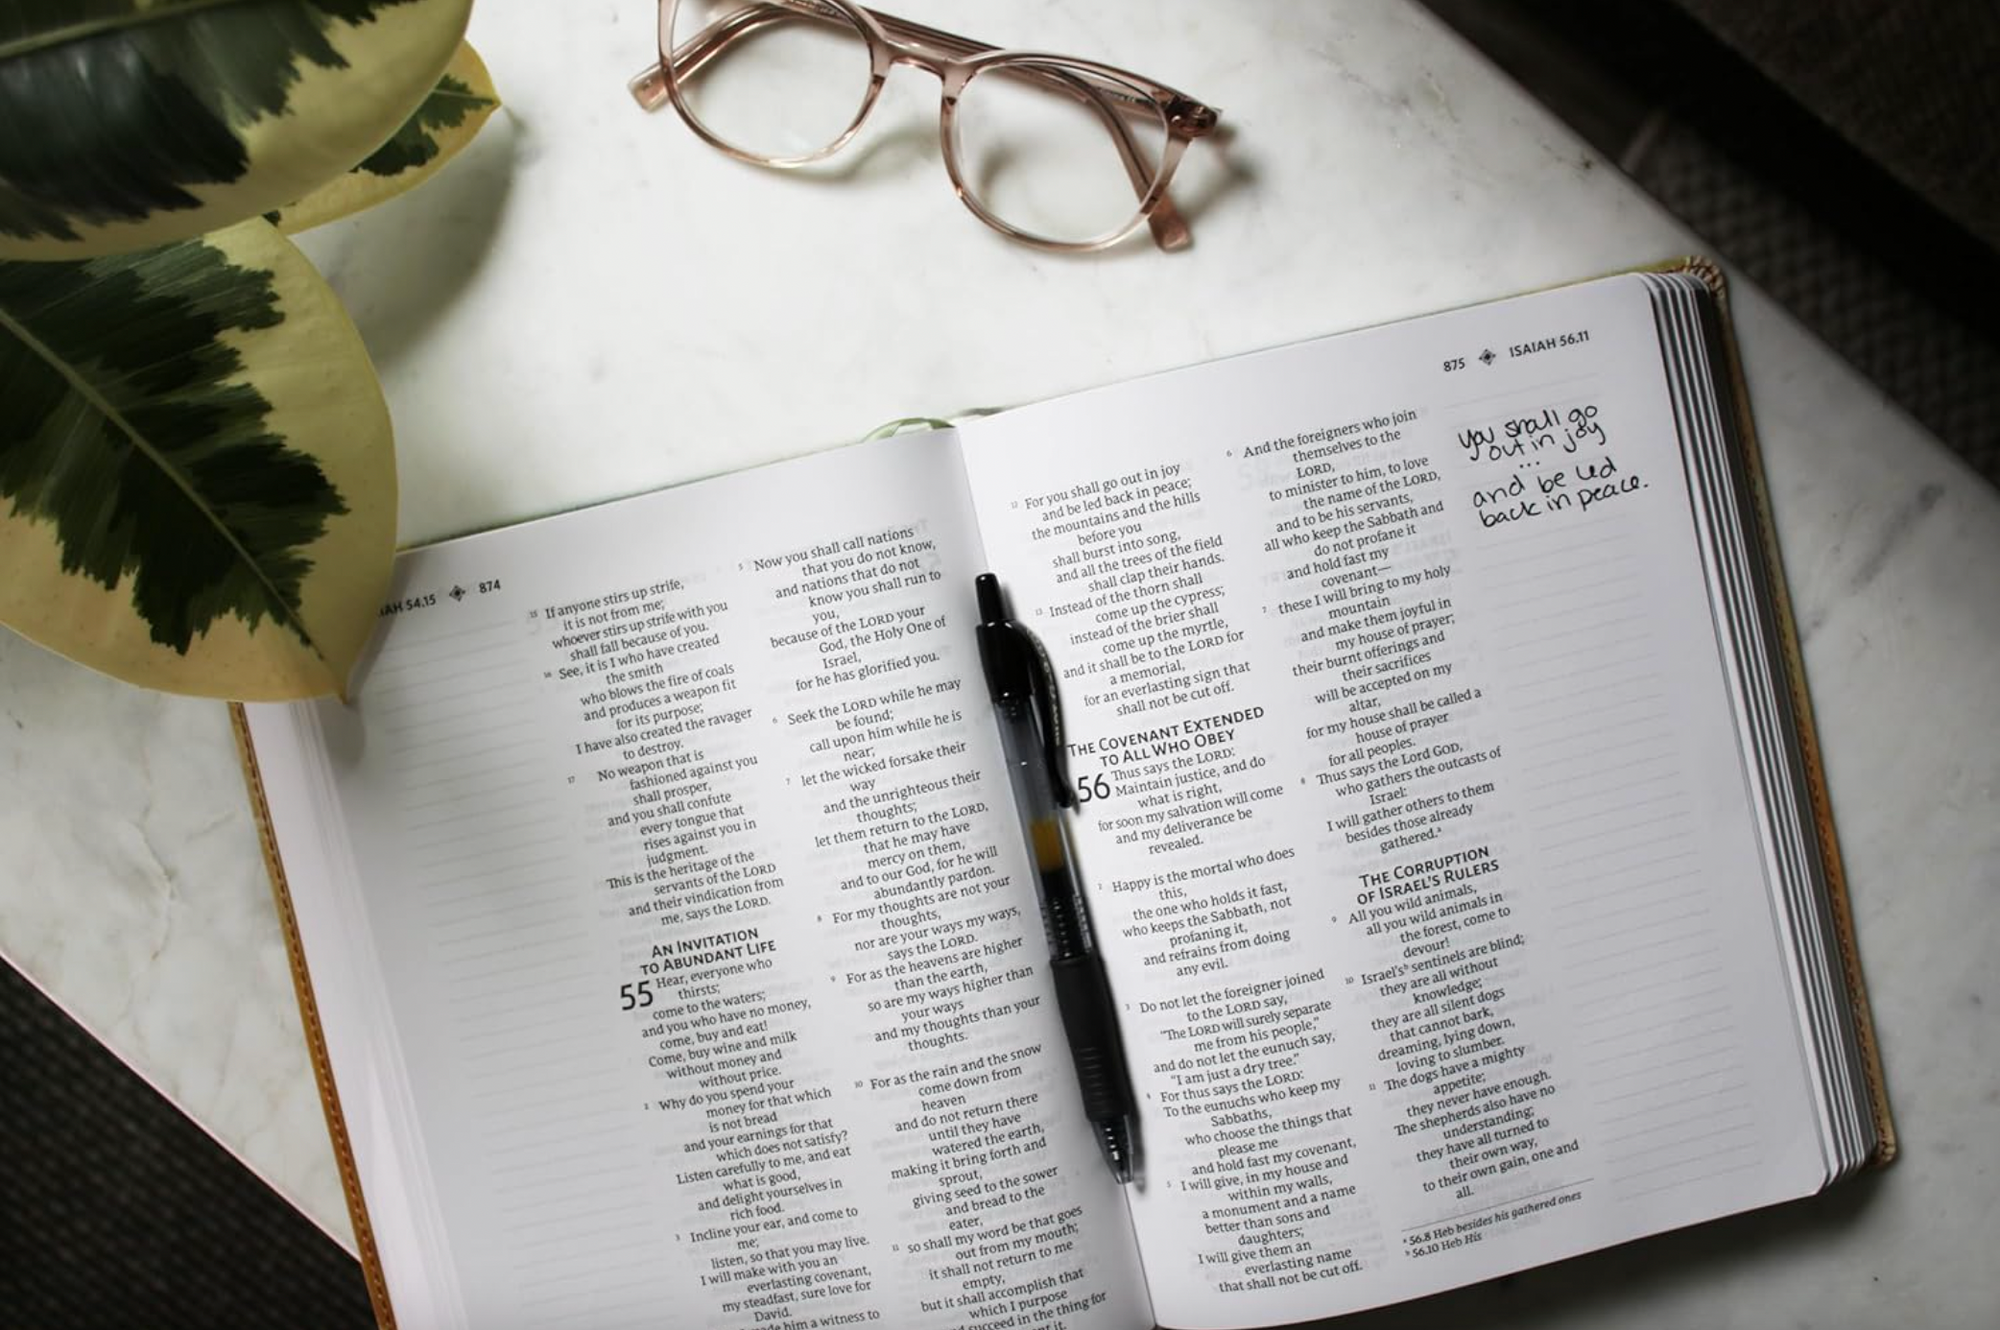 AH 54.15 874
15 If anyone stirs up strife,
it is not from me;
whoever stirs up strife with you
shall fall because of you.
16 See, it is I who have created
the smith
who blows the fire of coals
and produces a weapon fit
for its purpose;
I have also created the ravager
to destroy.
17 No weapon that is
fashioned against you
shall prosper,
and you shall confute
every tongue that
rises against you in
judgment.
This is the heritage of the
servants of the LORD
and their vindication from
me, says the LORD.
AN INVITATION
TO ABUNDANT LIFE
55 Hear, everyone who
thirsts;
come to the waters;
and you who have no money,
come, buy and eat!
Come, buy wine and milk
without money and
without price.
2 Why do you spend your
money for that which
is not bread
and your earnings for that
which does not satisfy?
Listen carefully to me, and eat
what is good,
and delight yourselves in
rich food.
3 Incline your ear, and come to
me;
listen, so that you may live.
I will make with you an
everlasting covenant,
my steadfast, sure love for
David.
made him a witness to
5 Now you shall call nations
that you do not know,
and nations that do not
know you shall run to
you,
because of the LORD your
God, the Holy One of
Israel,
for he has glorified you.
6 Seek the LORD while he may
be found;
call upon him while he is
near;
7 let the wicked forsake their
way
and the unrighteous their
thoughts;
let them return to the LORD,
that he may have
mercy on them,
and to our God, for he will
abundantly pardon.
8 For my thoughts are not your
thoughts,
nor are your ways my ways,
says the LORD.
9 For as the heavens are higher
than the earth,
so are my ways higher than
your ways
and my thoughts than your
thoughts.
10 For as the rain and the snow
come down from
heaven
and do not return there
until they have
watered the earth,
making it bring forth and
sprout,
giving seed to the sower
and bread to the
eater,
11 so shall my word be that goes
out from my mouth;
it shall not return to me
empty,
but it shall accomplish that
which I purpose
succeed in the thing for
it.
875 ISAIAH 56.11
12 For you shall go out in joy
and be led back in peace;
the mountains and the hills
before you
shall burst into song,
and all the trees of the field
shall clap their hands.
13 Instead of the thorn shall
come up the cypress;
instead of the brier shall
come up the myrtle,
and it shall be to the LORD for
a memorial,
for an everlasting sign that
shall not be cut off.
THE COVENANT EXTENDED
TO ALL WHO OBEY
56 Thus says the LORD:
Maintain justice, and do
what is right,
for soon my salvation will come
and my deliverance be
revealed.
2 Happy is the mortal who does
this,
the one who holds it fast,
who keeps the Sabbath, not
profaning it,
and refrains from doing
any evil.
3 Do not let the foreigner joined
to the LORD say,
"The LORD will surely separate
me from his people,"
and do not let the eunuch say,
"I am just a dry tree."
4 For thus says the LORD:
To the eunuchs who keep my
Sabbaths,
who choose the things that
please me
and hold fast my covenant,
5 I will give, in my house and
within my walls,
a monument and a name
better than sons and
daughters;
I will give them an
everlasting name
that shall not be cut off.
6 And the foreigners who join
themselves to the
LORD,
to minister to him, to love
the name of the LORD,
and to be his servants,
all who keep the Sabbath and
do not profane it
and hold fast my
covenant—
7 these I will bring to my holy
mountain
and make them joyful in
my house of prayer;
their burnt offerings and
their sacrifices
will be accepted on my
altar,
for my house shall be called a
house of prayer
for all peoples.
8 Thus says the Lord GOD,
who gathers the outcasts of
Israel:
I will gather others to them
besides those already
gathered.a
THE CORRUPTION
OF ISRAEL'S RULERS
9 All you wild animals,
all you wild animals in
the forest, come to
devour!
10 Israel'sb sentinels are blind;
they are all without
knowledge;
they are all silent dogs
that cannot bark,
dreaming, lying down,
loving to slumber.
11 The dogs have a mighty
appetite;
they never have enough.
The shepherds also have no
understanding;
they have all turned to
their own way,
to their own gain, one and
all.
a 56.8 Heb besides his gathered ones
b 56.10 Heb His
you shall go
out in joy
...
and be led
back in peace.